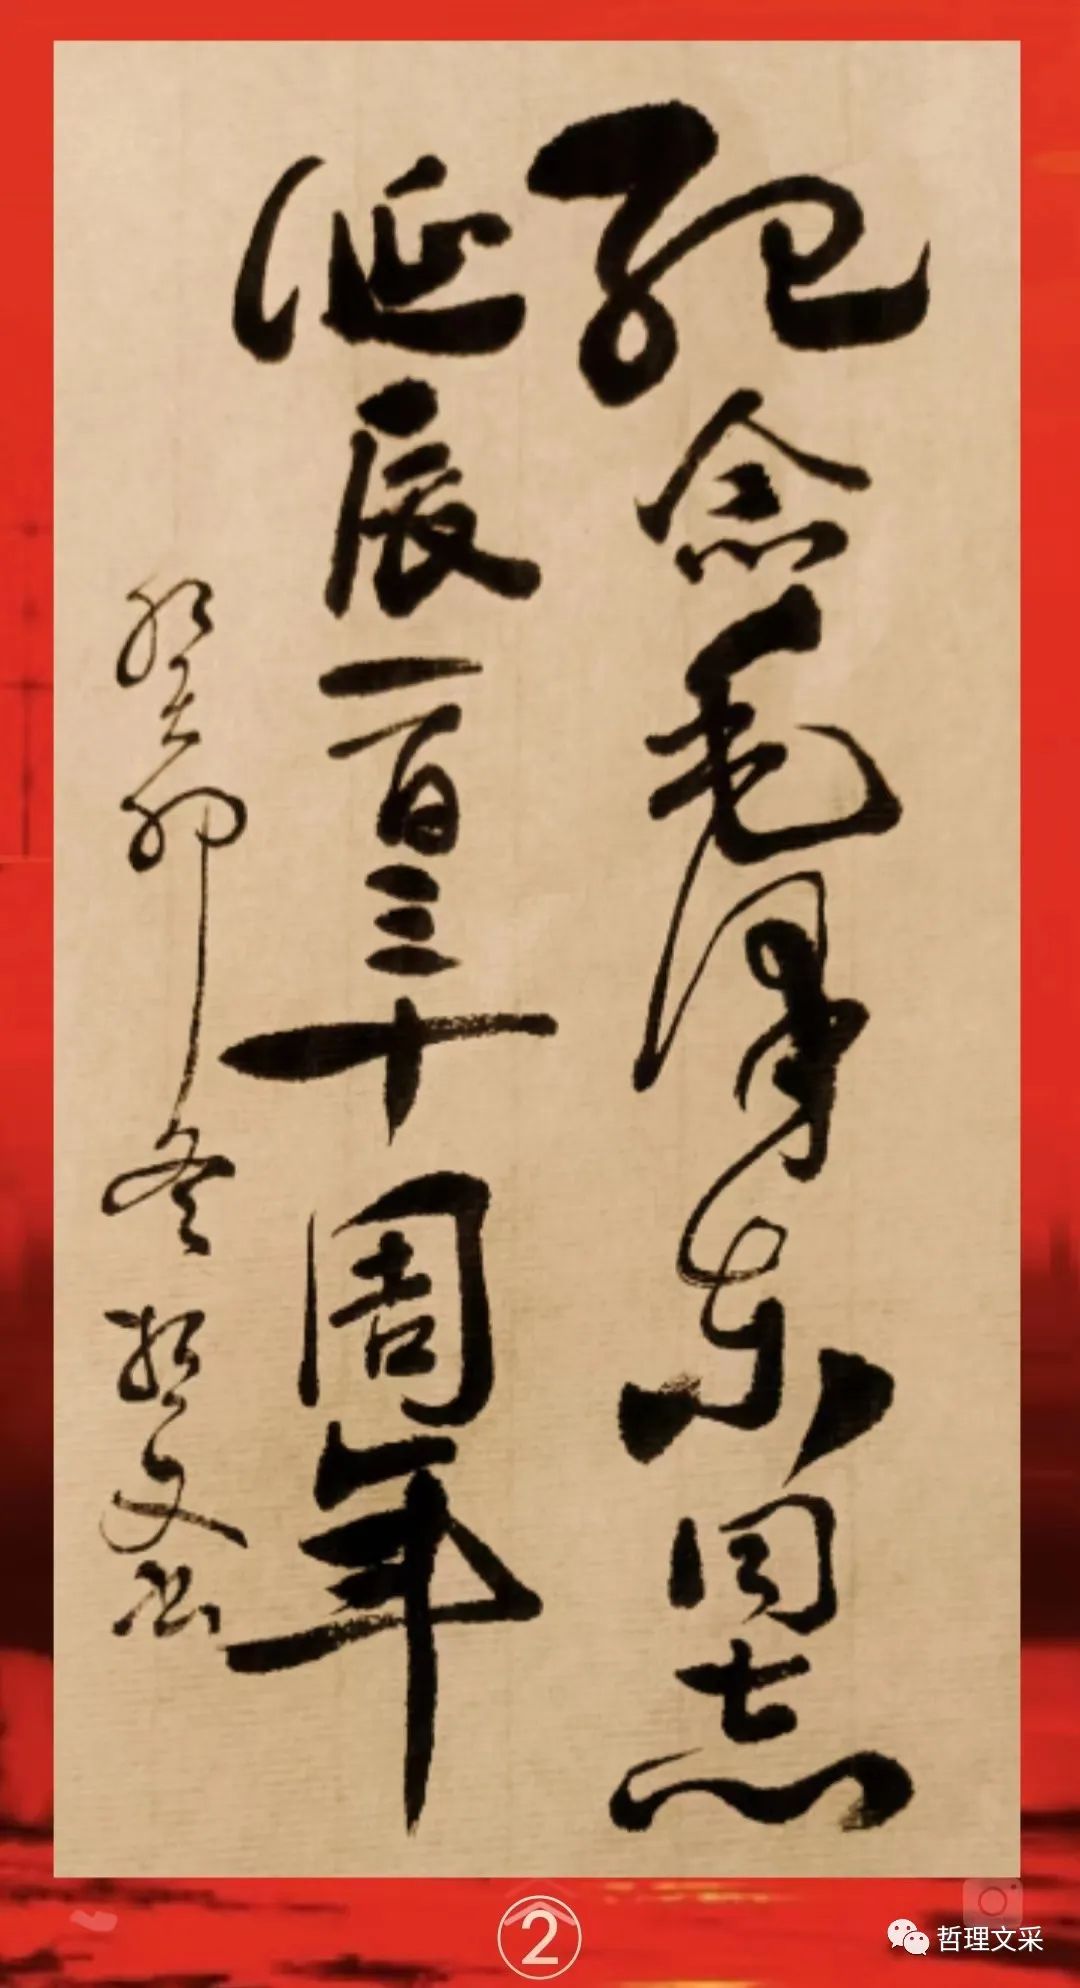 纪念毛泽东同志
诞辰一百三十周年
癸卯冬 文书
②
哲理文采